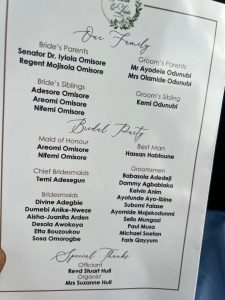 & Leo
Our Family
Bride's Parents
Senator Dr. Iyiola Omisore
Regent Mojisola Omisore
Groom's Parents
Mr Ayodele Odunubi
Mrs Olamide Odunubi
Bride's Siblings
Adesore Omisore
Areomi Omisore
Nifemi Omisore
Groom's Sibling
Kemi Odunubi
Bridal Party
Maid of Honour
Areomi Omisore
Nifemi Omisore
Best Man
Hassan Habtoune
Chief Bridesmaids
Temi Adesegun
Bridesmaids
Divine Adegbie
Dumebi Anike-Nweze
Aisha-Juanita Arden
Desola Awokoya
Etta Bouzoukou
Sosa Omorogbe
Groomsmen
Babasola Adedeji
Dammy Agbabiaka
Kelvin Anim
Ayotunde Ayo-Ibine
Suborni Falase
Ayomide Majekodunmi
Sello Mungazi
Paul Musa
Michael Soetan
Faris Qayyum
Special Thanks
Officiant
Revd Stuart Hull
Organist
Mrs Suzanne Hull